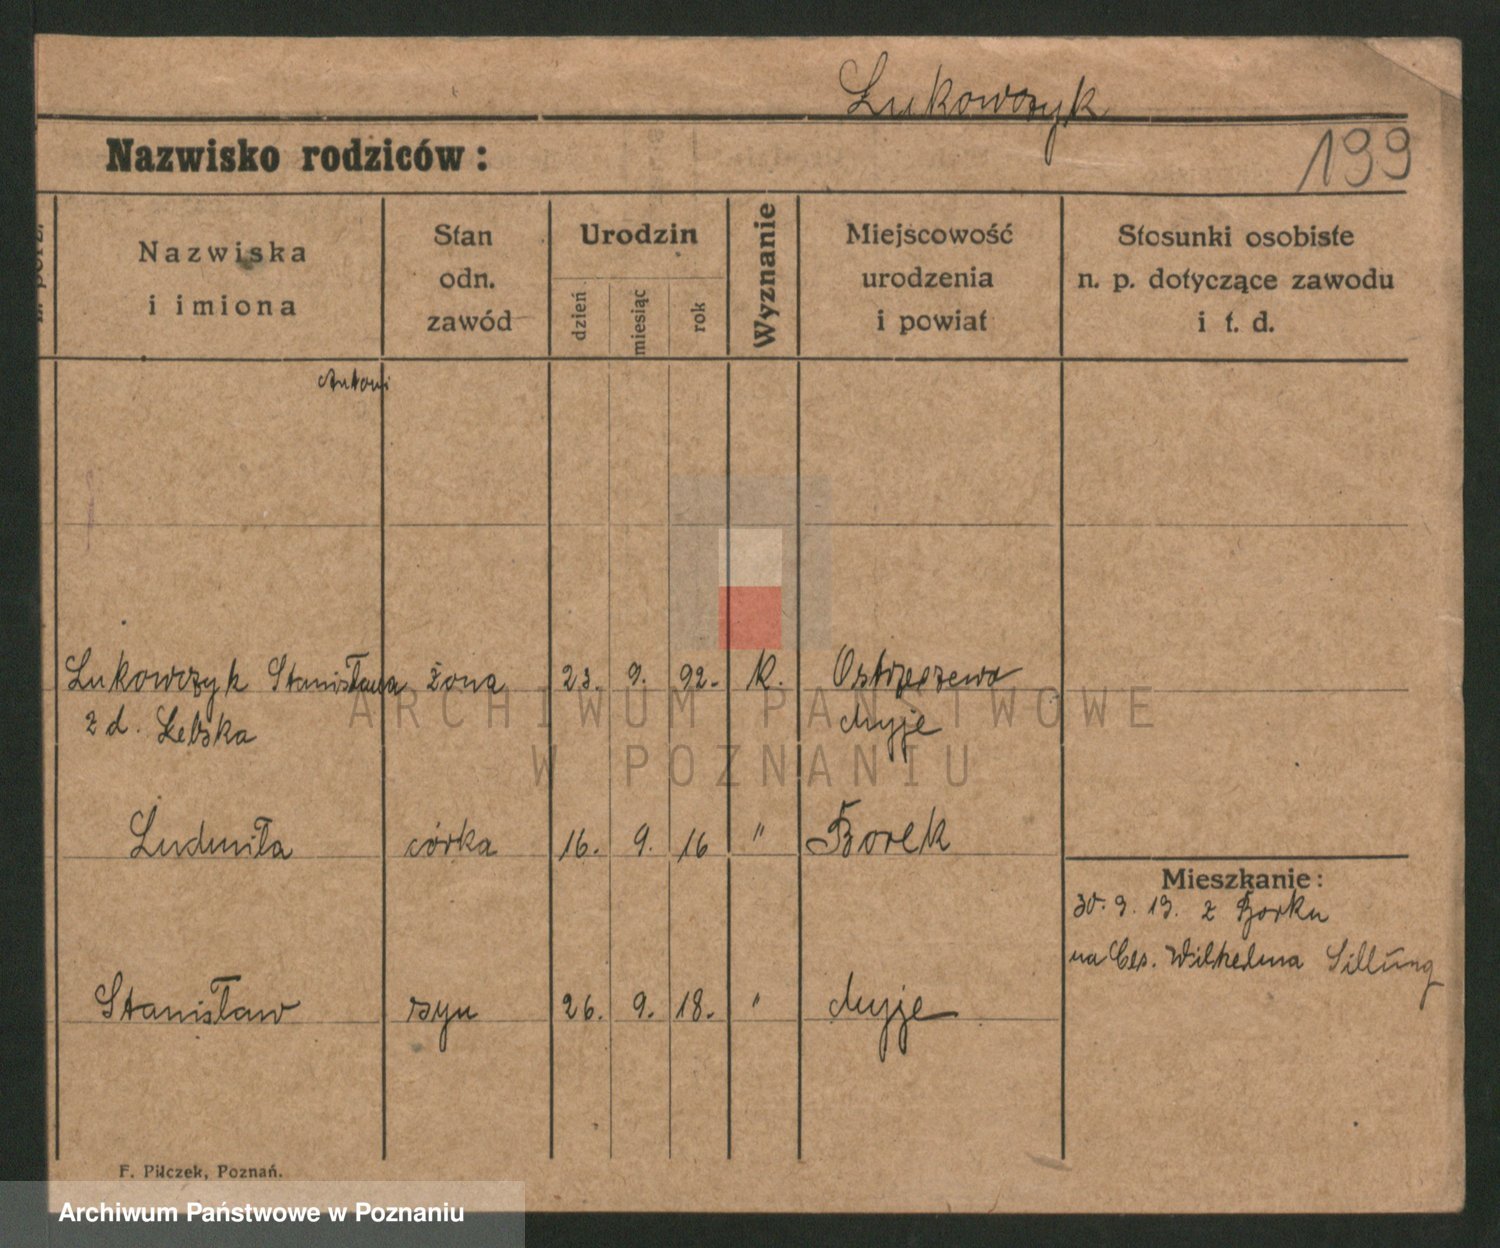 Łukowczyk
199
Nazwisko rodziców:
L. porz.
Nazwiska
i imiona
Stan
odn.
zawód
Urodzin
dzień
miesiąc
rok
Wyznanie
Miejscowość
urodzenia
i powiat
Stosunki osobiste
n. p. dotyczące zawodu
i t. d.
Antoni
Łukowczyk Stanisława żona 23. 9. 92. K. Ostrzeszewo
z d. Łebska
Ludmiła córka 16. 9. 16 " Borek
Mieszkanie:
30. 9. 19. z Borku
na Ces. Wilhelma
Stanisław syn 26. 9. 18. "
F. Pilczek, Poznań.
ARCHIWUM PAŃSTWOWE
W POZNANIU
Archiwum Państwowe w Poznaniu